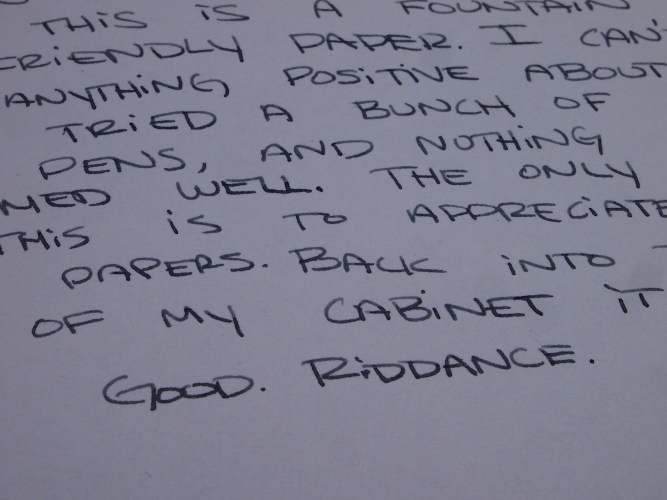 THIS IS A FOUNTAIN
FRIENDLY PAPER. I CAN'T
ANYTHING POSITIVE ABOUT
TRIED A BUNCH OF
PENS, AND NOTHING
WELL. THE ONLY
THIS IS TO APPRECIATE
PAPERS. BACK INTO
OF MY CABINET IT
GOOD. RIDDANCE.